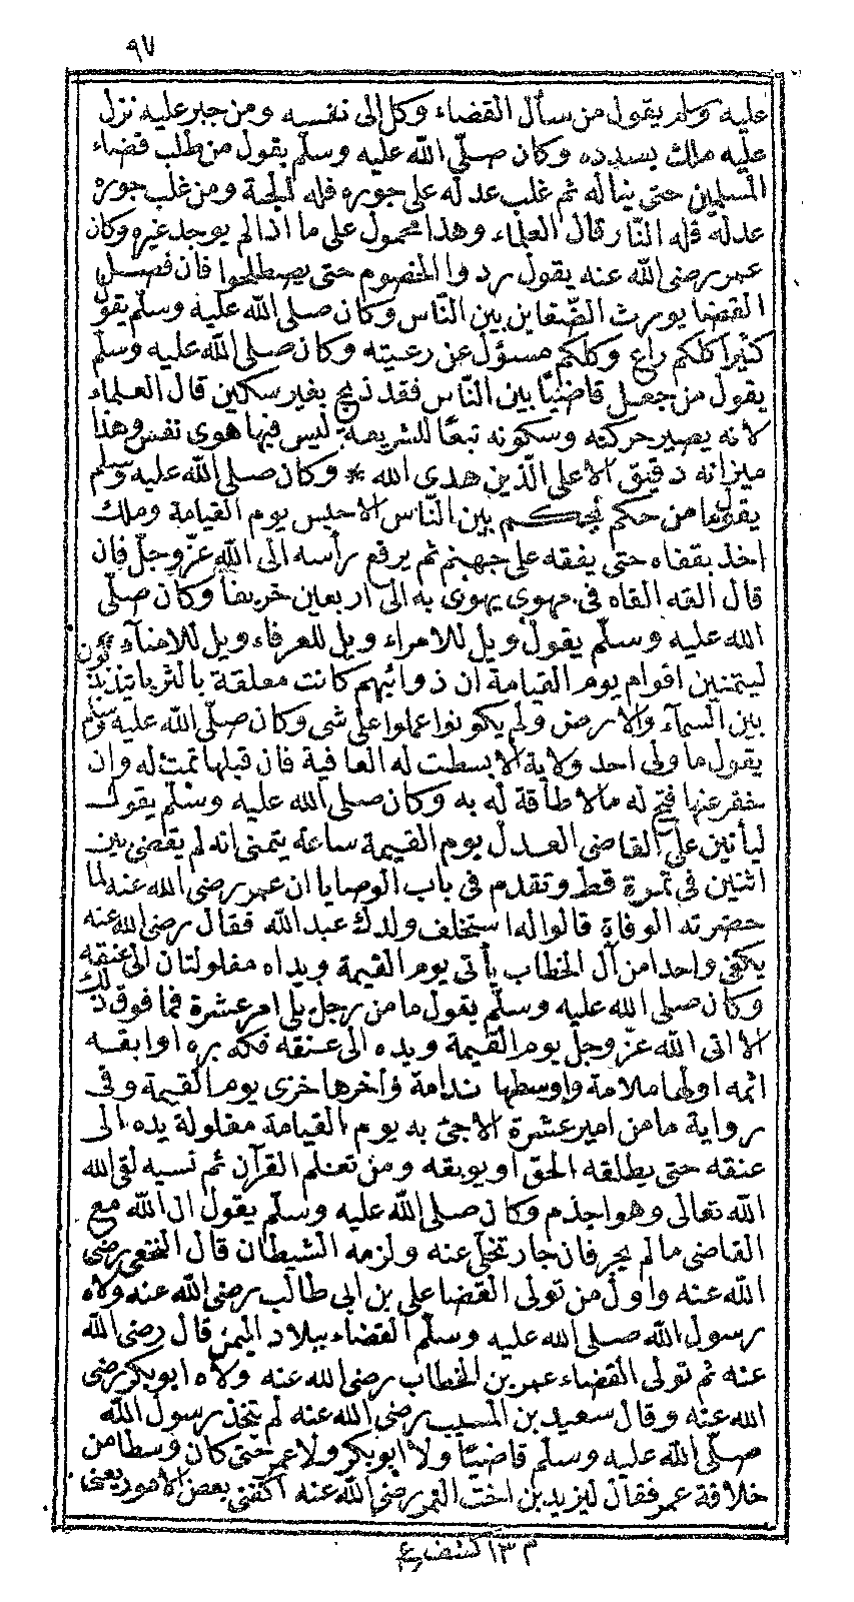 ٩٧
عليه وسلم يقول من سأل القضاء وكل الى نفسه ومن جبر عليه نزل
عليه ملك يسدده وكان صلّى الله عليه وسلّم يقول من طلب قضاء
المسلمين حتى يناله ثم غلب عدله على جوره فله الجنة ومن غلب جوره
عدله فله النّار قال العلماء وهذا محمول على ما اذا لم يوجد غيره وكان
عمر رضى الله عنه يقول ردوا الخصوم حتى يصطلحوا فان فصل
القضا يورث الضّغاين بين النّاس وكان صلى الله عليه وسلّم يقول
كثيرا كلكم راع وكلكم مسؤل عن رعيته وكان صلى الله عليه وسلم
يقول من جعل قاضيًا بين النّاس فقد ذبح بغير سكين قال العلماء
لانه يصير حركته وسكونه تبعًا للشريعة ليس فيها هوى نفس وهذا
ميزانه دقيق الا على الّذين هدى الله * وكان صلى الله عليه وسلم
يقول ما من حكم يحكم بين النّاس الا حبس يوم القيامة وملك
اخذ بقفاه حتى يقفه على جهنم ثم يرفع رأسه الى الله عزّ وجلّ فان
قال القه القاه فى مهوى يهوى به الى اربعين خريفًا وكان صلّى
الله عليه وسلّم يقول ويل للامراء ويل للعرفاء ويل للامنآء
ليتمنين اقوام يوم القيامة ان ذوائبهم كانت معلقة بالثريا يتذبذبون
بين السمآء والارض ولم يكونوا عملوا على شى وكان صلّى الله عليه وسلم
يقول ما ولى احد ولاية الا بسطت له العافية فان قبلها تمت له وان
خفر عنها فتح له ما لا طاقة له به وكان صلى الله عليه وسلّم يقول
ليأتين على القاضى العدل يوم القيمة ساعة يتمنى انه لم يقض بين
اثنين فى تمرة قط وتقدم فى باب الوصايا ان عمر رضى الله عنه لما
حضرته الوفاة قالوا له استخلف ولدك عبد الله فقال رضى الله عنه
يكفى واحدا من آل الخطاب يأتى يوم القيمة ويداه مغلولتان الى عنقه
وكان صلى الله عليه وسلّم يقول ما من رجل يلى امر عشرة فما فوق ذلك
الا اتى الله عزّ وجلّ يوم القيمة ويده الى عنقه فكه بره او ابقه
اثمه اولها ملامة واوسطها ندامة وآخرها خزى يوم القيمة وفى
رواية ما من امير عشرة الا جئ به يوم القيامة مغلولة يده الى
عنقه حتى يطلقه الحق او يوبقه ومن تعلم القرآن ثم نسيه لقى الله
الله تعالى وهو اجذم وكان صلى الله عليه وسلّم يقول ان الله مع
القاضى ما لم يجر فان جار تخلى عنه ولزمه الشيطان قال النخعى رضى
الله عنه واول من تولى القضا على بن ابى طالب رضى الله عنه ولاه
رسول الله صلى الله عليه وسلّم القضاء ببلاد اليمن قال رضى الله
عنه ثم تولى القضاء عمر بن الخطاب رضى الله عنه ولاه ابو بكر رضى
الله عنه وقال سعيد بن المسيب رضى الله عنه لم يتخذ رسول الله
صلّى الله عليه وسلّم قاضيًا ولا ابو بكر ولا عمر حتى كان وسطا من
خلافة عمر فقال ليزيد بن اخت النمر رضى الله عنه اكفنى بعض الامور يعنى
م ١٣ كشف ع